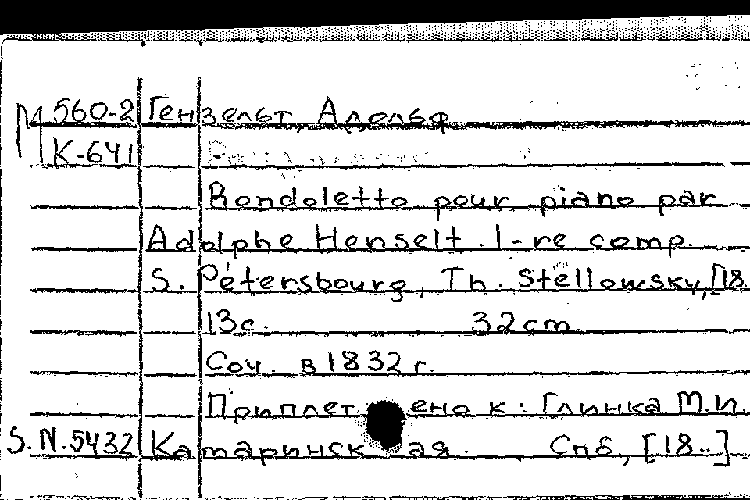 М 560-2 Гензельт, Адольф
К-641
Rondoletto pour piano par
Adolphe Henselt. 1-re comp.
S. Pétersbourg, Th. Stellowsky, [18
13с. 32cm
Соч. в 1832 г.
Приплетено к: Глинка М.И.
S.N.5432 Катаринская Спб, [18..]